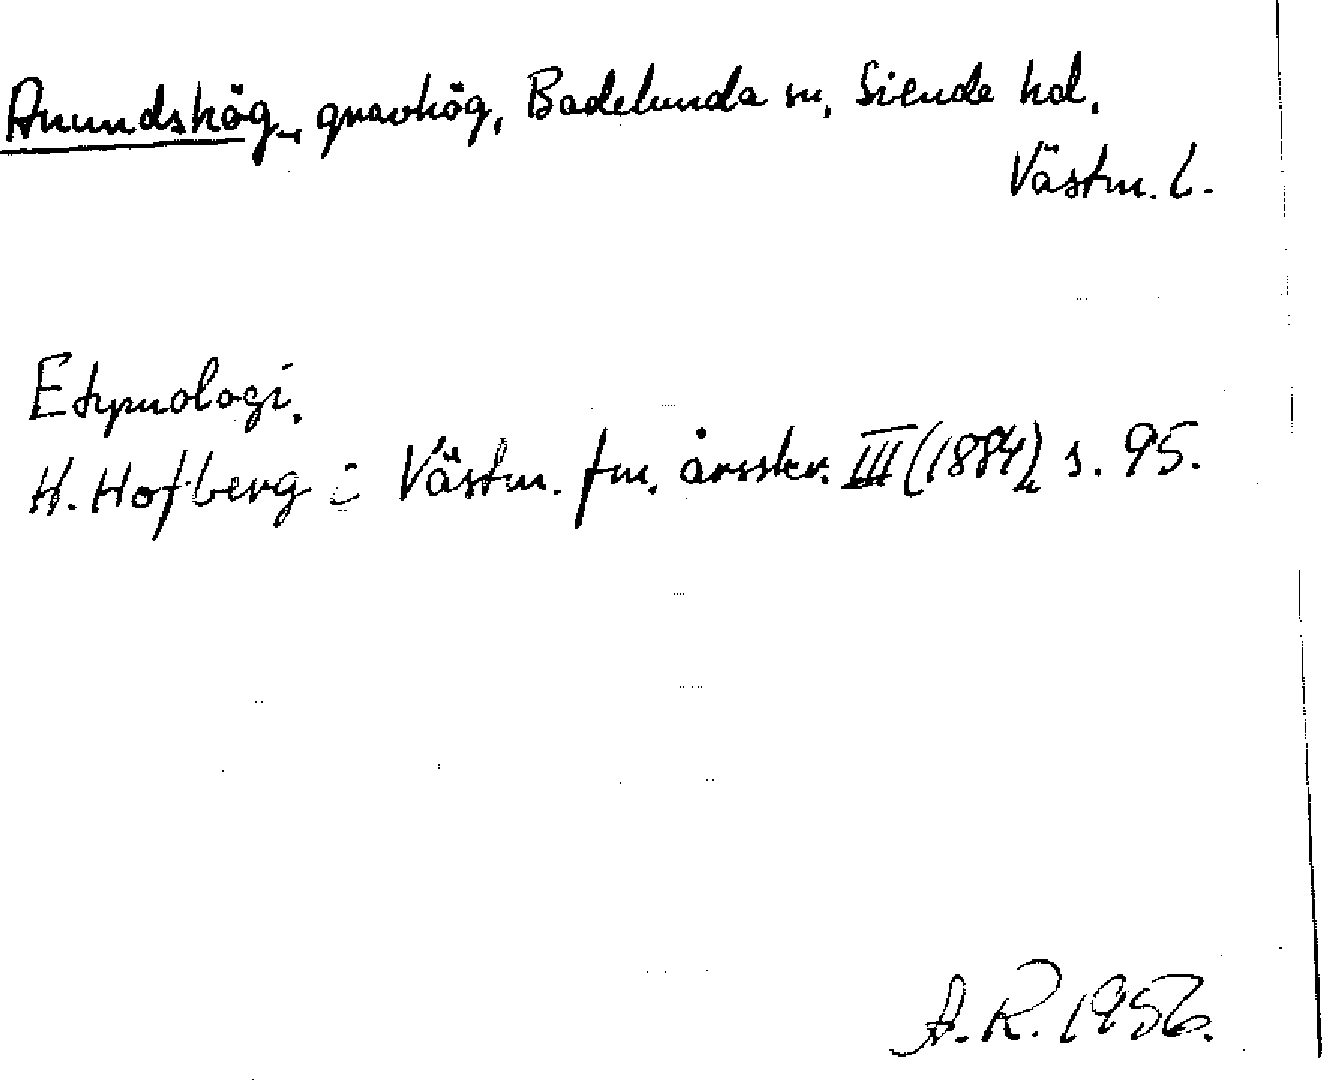 Anundshög, gravhög, Badelunda sn, Siende hd.
Västm. l.
Etymologi.
H. Hofberg i Västm. fm. årsskr. III (1884), s. 95.
A.R. 1956.